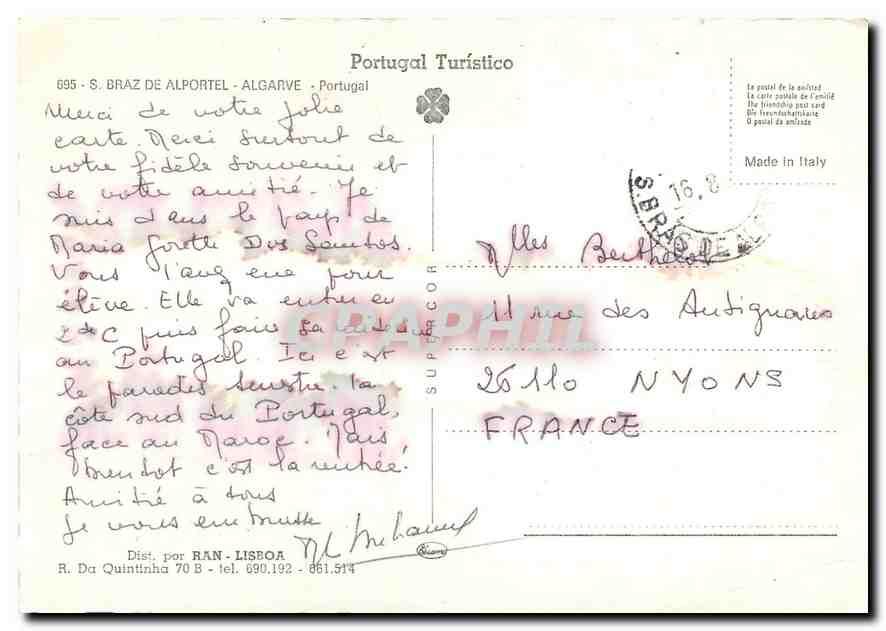 Portugal Turístico
695 - S. BRAZ DE ALPORTEL - ALGARVE - Portugal
Merci de votre jolie
carte. Merci surtout de
votre fidèle souvenir et
de votre amitié. Je
suis dans le pays de
Maria Gorette Dos Santos.
Vous l'avez eue pour
élève. Elle va entrer en
2de C puis faire sa
au Portugal. Ici c'est
le paradis terrestre. la
côte sud du Portugal,
face au Maroc. Mais
bientôt c'est la rentrée.
Amitié à tous
Je vous embrasse
Dist. por RAN - LISBOA
R. Da Quintinha 70 B - tel. 690.192 - 661.514
SUPERCOR
CPAPHIL
La postal de la amistad
La carte postale de l'amitié
The friendship post card
Die freundschaftskarte
O postal da amizade
Made in Italy
16.8
S. BRAZ DE
Mlles Berthelot
11 rue des Antignans
26110 NYONS
FRANCE